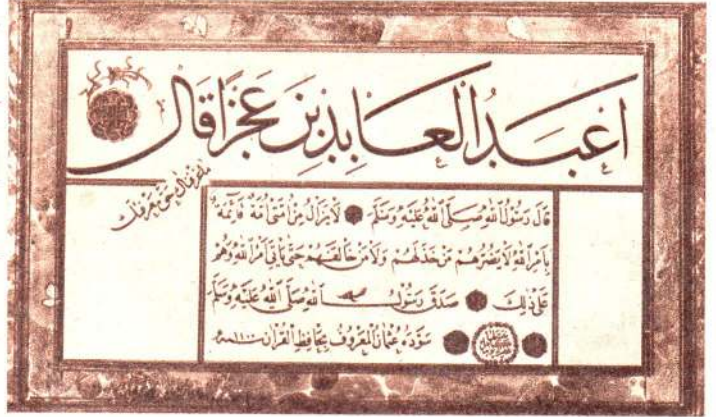 اغبد العابدين عجزا قال
ما عرفناك حق معرفتك
قال رسول الله صلى الله عليه وسلم لا يزال من امتى امة قائمة
بامر الله لا يضرهم من خذلهم ولا من خالفهم حتى ياتى امر الله وهم
على ذلك صدق رسول الله صلى الله عليه وسلم
سوده عثمان المعروف بحافظ القرآن